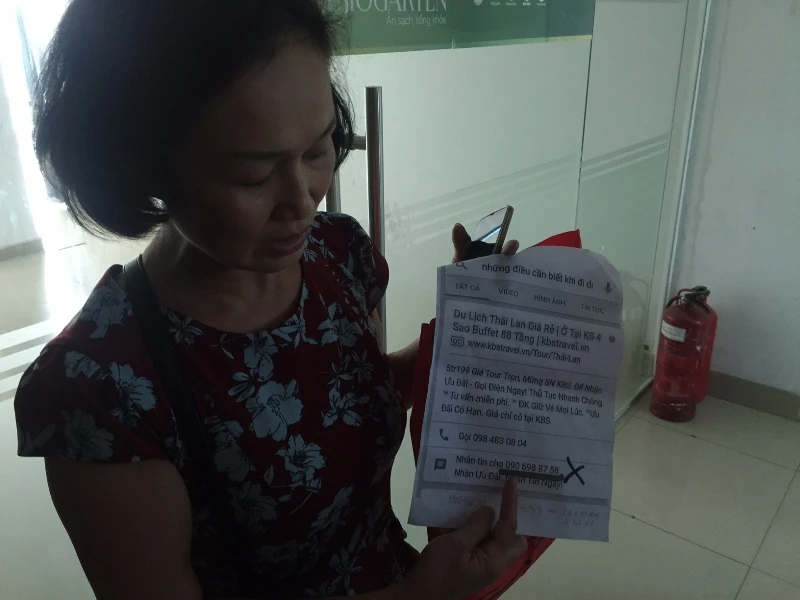 BIOGARTEN
Ăn sạch, sống khỏe
những điều cần biết khi đi du
TẤT CẢ VIDEO HÌNH ẢNH TIN TỨC
Du Lịch Thái Lan Giá Rẻ | Ở Tại KS 4
Sao Buffet 88 Tầng | kbstravel.vn
QC www.kbstravel.vn/Tour/Thái-Lan
5tr199 Giá Tour Trọn, Mừng SN KBS. Để Nhận
Ưu Đãi - Gọi Điện Ngay! Thủ Tục Nhanh Chóng.
Tư vấn miễn phí. ĐK Giữ Vé Mọi Lúc. Ưu
Đãi Có Hạn. Giá chỉ có tại KBS
Gọi 098 483 08 04
Nhắn tin cho 090 698 87 58 X
Nhận Ưu Đãi. Tin Ngay!